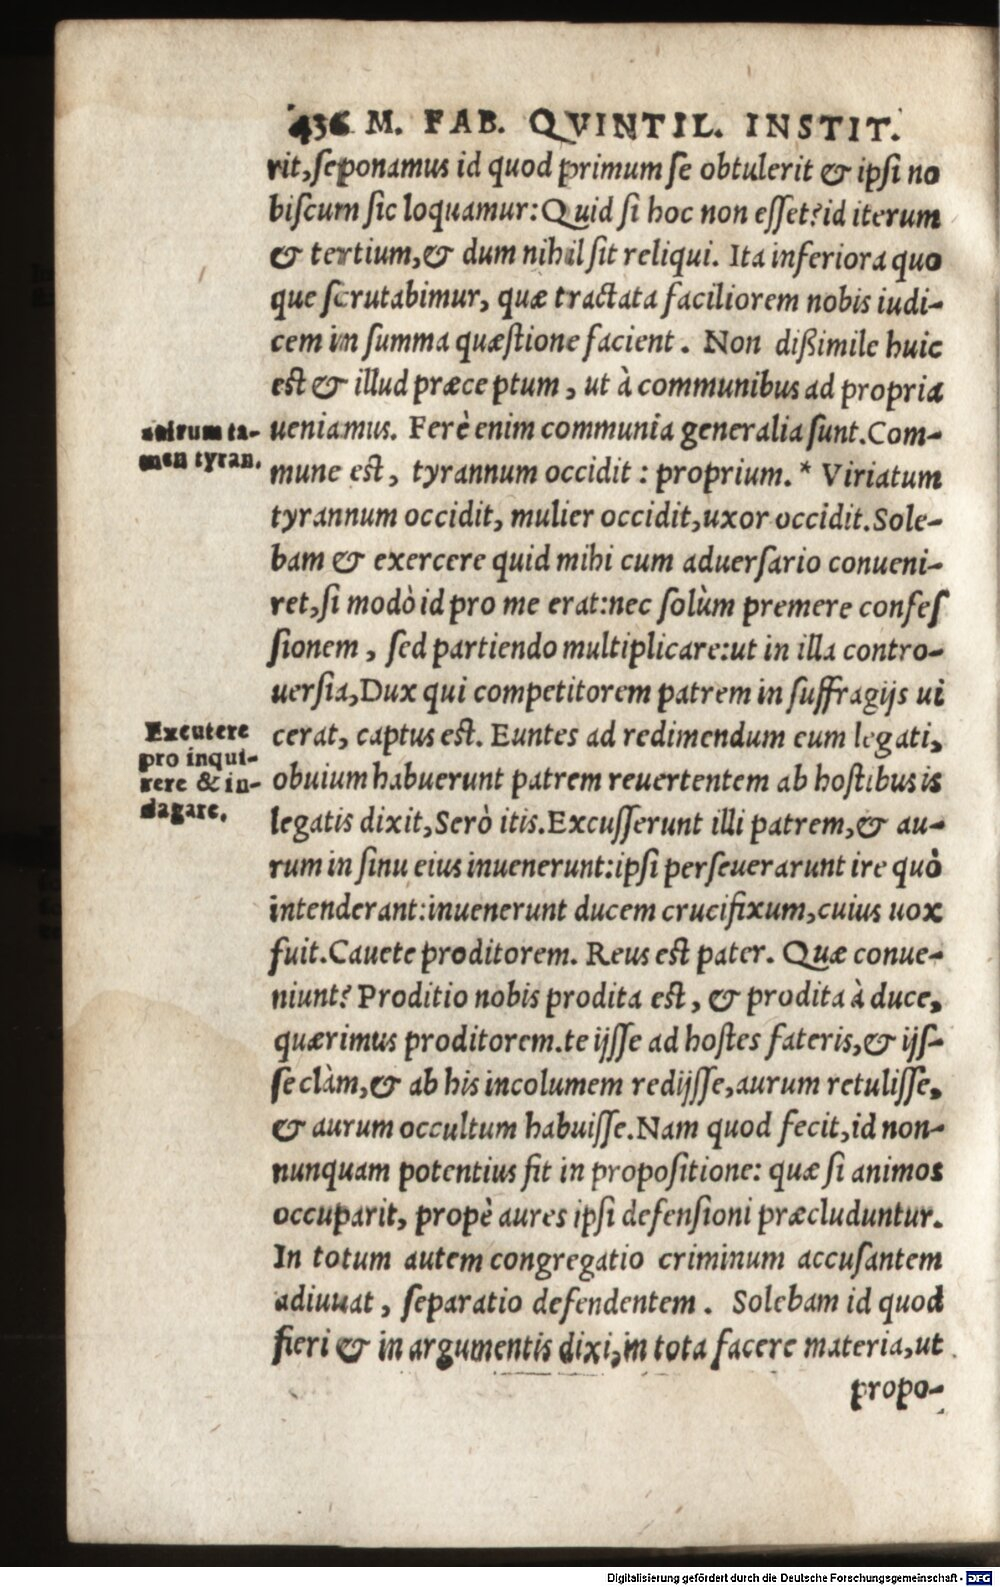 436 M. FAB. QVINTIL. INSTIT.
rit,ſeponamus id quod primum ſe obtulerit & ipſi no
biſcum ſic loquamur:Quid ſi hoc non eſſet?id iterum
& tertium,& dum nihil ſit reliqui. Ita inferiora quo
que ſcrutabimur, quæ tractata faciliorem nobis iudi-
cem in ſumma quæſtione facient. Non dißimile huic
eſt & illud præceptum, ut à communibus ad propria
ueniamus. Ferè enim communia generalia ſunt.Com-
mune eſt, tyrannum occidit: proprium.* Viriatum
tyrannum occidit, mulier occidit,uxor occidit.Sole-
bam & exercere quid mihi cum aduerſario conueni-
ret,ſi modò id pro me erat:nec ſolùm premere confeſ
ſionem, ſed partiendo multiplicare:ut in illa contro-
uerſia,Dux qui competitorem patrem in ſuffragijs ui
cerat, captus eſt. Euntes ad redimendum eum legati,
obuium habuerunt patrem reuertentem ab hoſtibus is
legatis dixit,Serò itis.Excuſſerunt illi patrem,& au-
rum in ſinu eius inuenerunt:ipſi perſeuerarunt ire quò
intenderant:inuenerunt ducem crucifixum,cuius uox
fuit.Cauete proditorem. Reus eſt pater. Quæ conue-
niunt? Proditio nobis prodita eſt, & prodita à duce,
quærimus proditorem.te ijſſe ad hoſtes fateris,& ijſ-
ſe clàm,& ab his incolumem redijſſe,aurum retuliſſe,
& aurum occultum habuiſſe.Nam quod fecit,id non-
nunquam potentius fit in propoſitione: quæ ſi animos
occuparit, propè aures ipſi defenſioni præcluduntur.
In totum autem congregatio criminum accuſantem
adiuuat, ſeparatio defendentem. Solebam id quod
fieri & in argumentis dixi,in tota facere materia,ut
propo-
ta-
men tyran.
Excutere
pro inqui-
rere & in-
dagare.
Digitalisierung gefördert durch die Deutsche Forschungsgemeinschaft - DFG